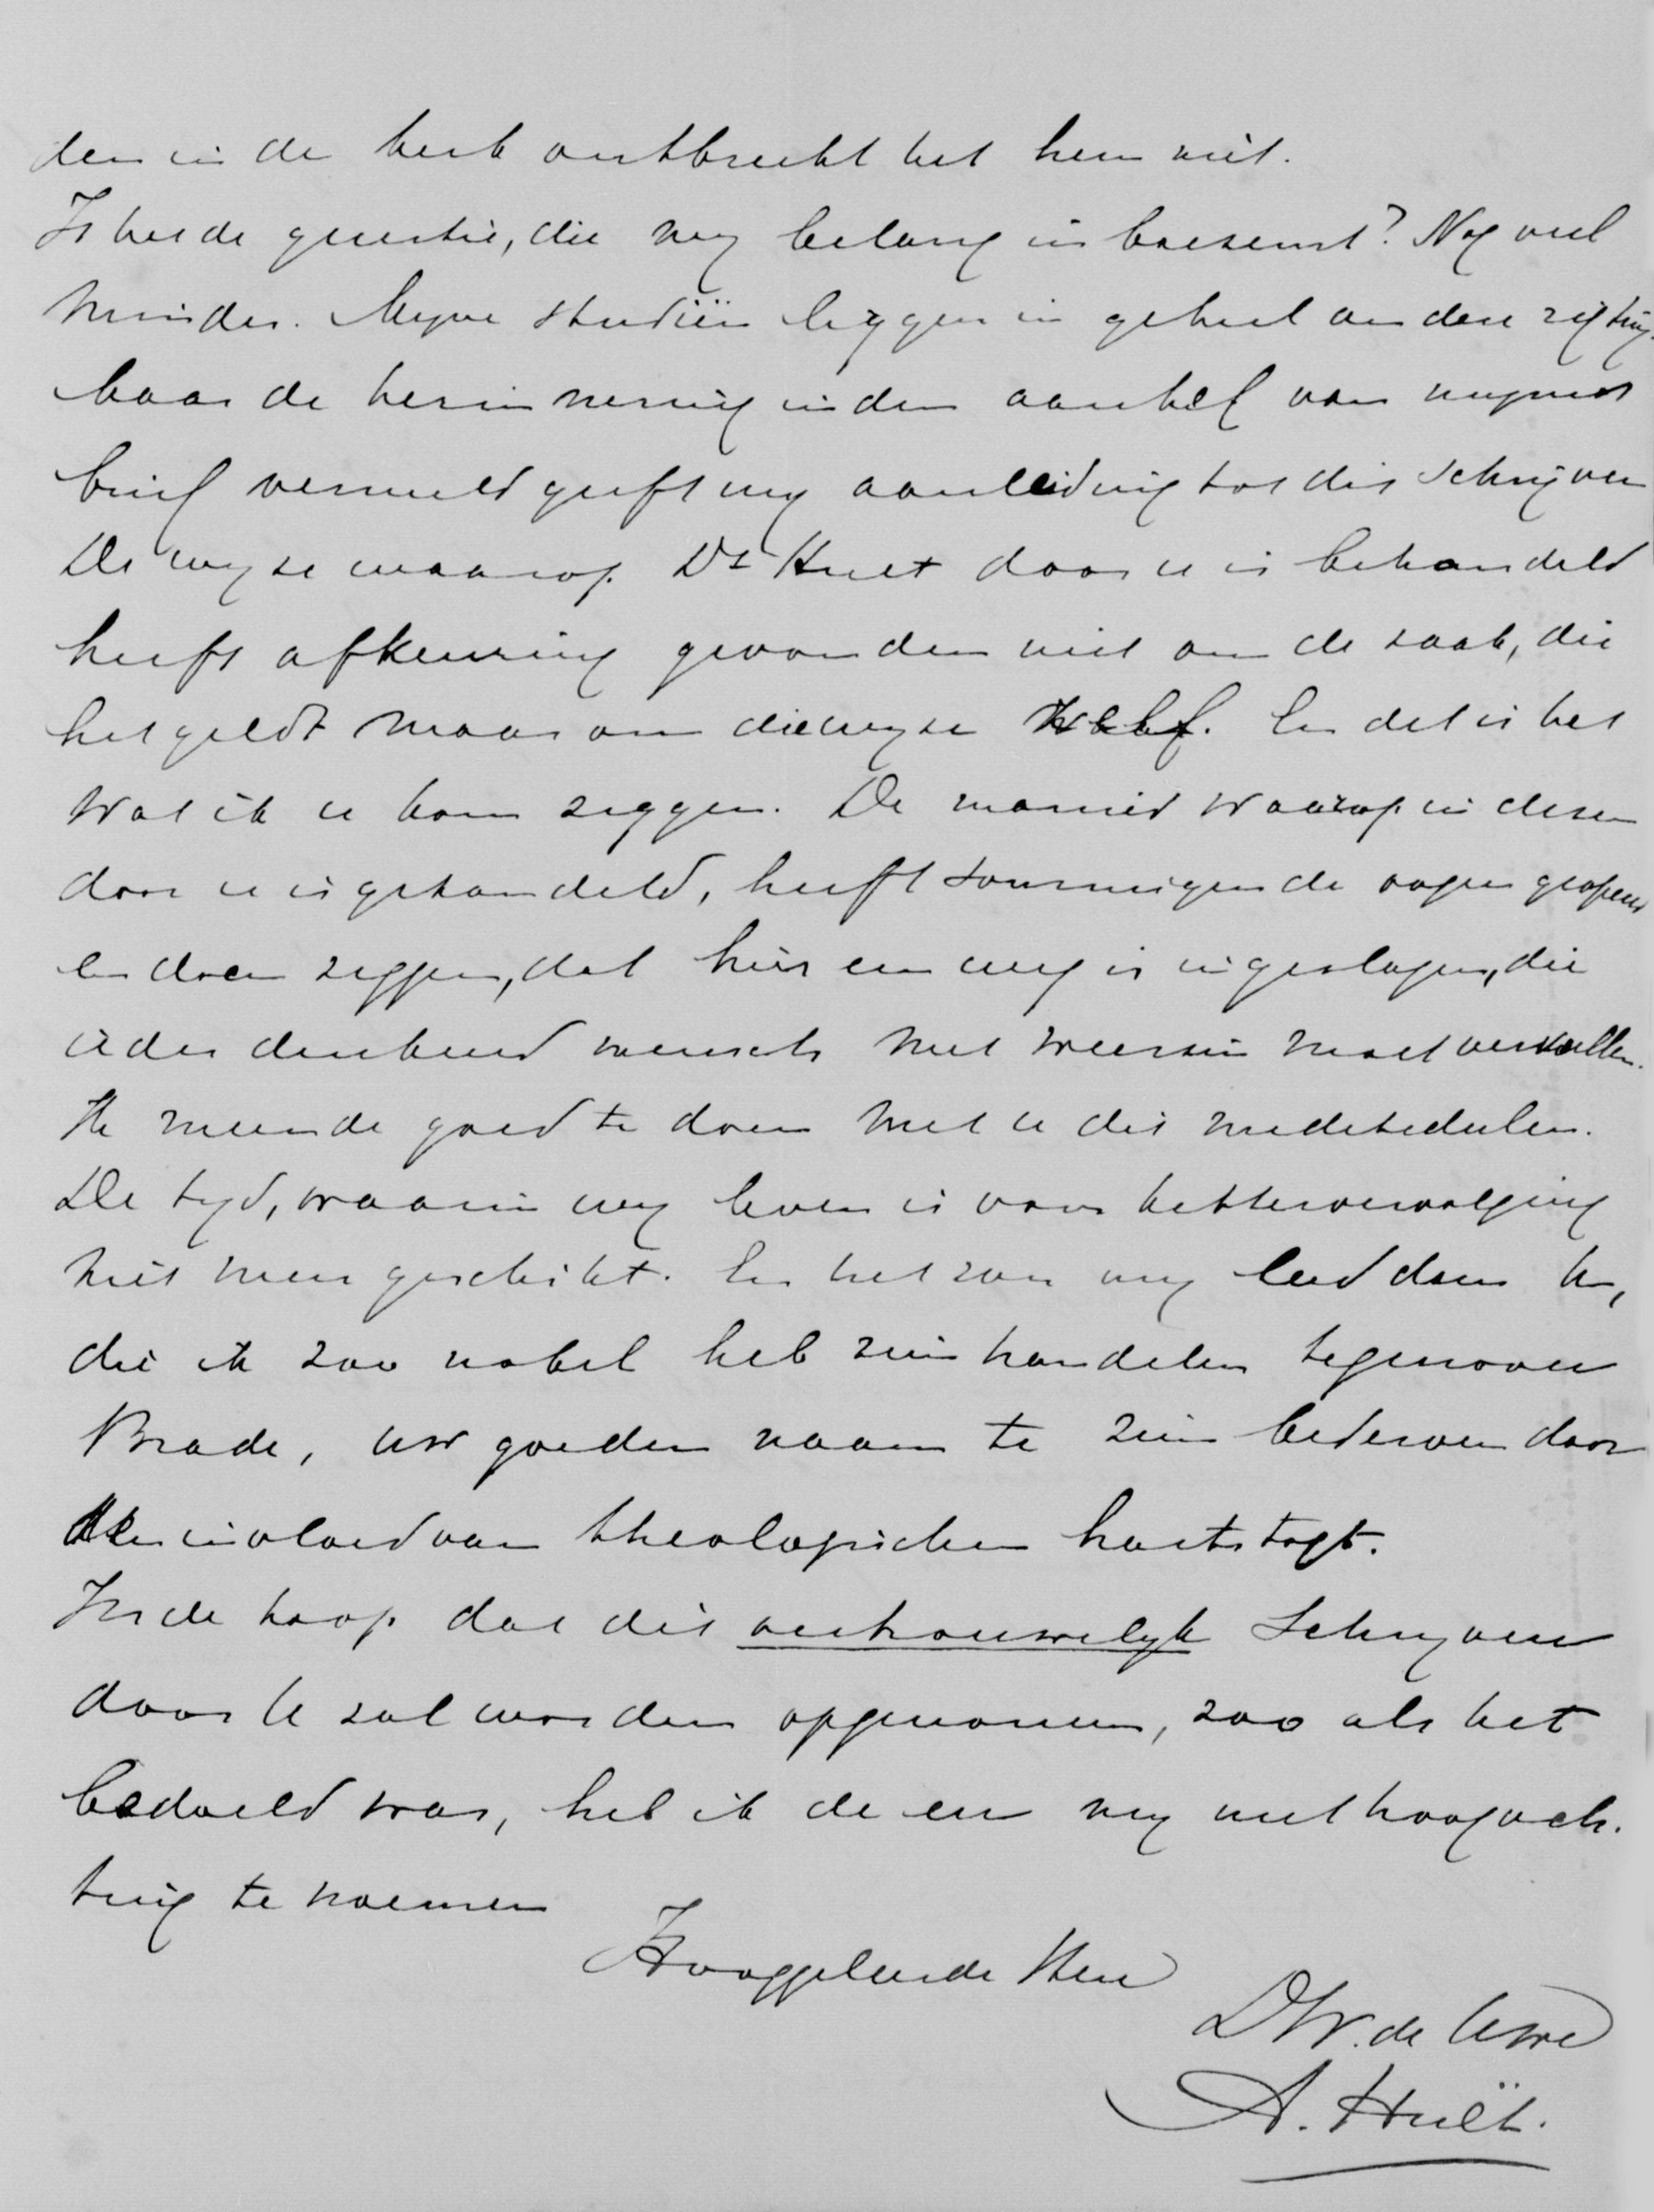 den in de kerk ontbreekt het hem niet.
Is het de questie, die my belang in boesemt? Nog veel
minder. Myne studiën liggen in geheel andere rigting.
Maar de herinnering in den aanhef van mynen
brief vermeld geeft my aanleiding tot dit schrijven
De wyze waarop Ds Huet door u is behandeld
heeft afkeuring gevonden niet om de zaak, die
het geldt maar om die wyze zelf. En dat is het
wat ik u kom zeggen. De manier waarop in dezen
door u is gehandeld, heeft sommigen de oogen geopend
en doen zeggen, dat hier een weg is ingeslagen, die
ieder denkend mensch met weerzin moet vervullen.
Ik meende goed te doen met u dit medetedeelen.
De tyd, waarin wy leven is voor kettervervolging
niet meer geschikt. En het zou my leed doen U,
die ik zoo nobel heb zien handelen tegenover
Brade, uw goeden naam te zien bederven door
den invloed van theologischen hartstogt.
In de hoop dat dit vertrouwelyk schryven
door U zal worden opgenomen, zoo als het
bedoeld was, heb ik de eer my met hoogach-
ting te noemen
Hooggeleerde Heer
DW. de Uwe
A. Huët.